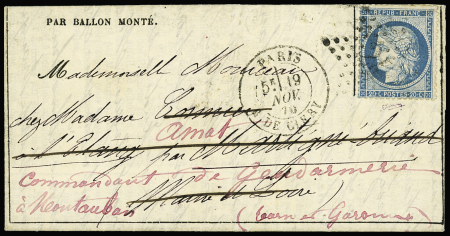 PAR BALLON MONTÉ.
Mademoiselle Monceau
chez Madame
Amat
à l'Etang par Martigné-Briand
Commandant de Gendarmerie
Maine et Loire
à Montauban (Tarn et Garonne)
PARIS
5E 19
NOV.
70
R. DE CLERY
REPUB. FRANC.
20 C. POSTES 20 C.